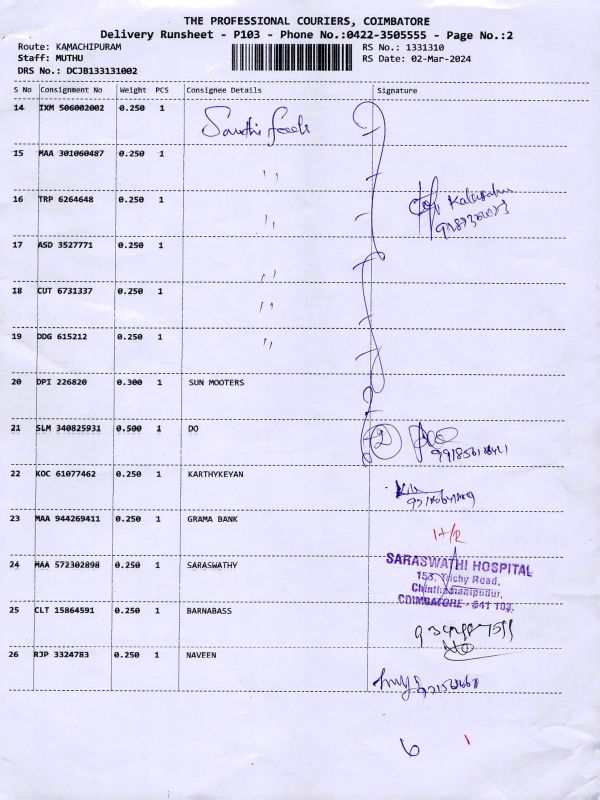 THE PROFESSIONAL COURIERS, COIMBATORE
Delivery Runsheet - P103 - Phone No.:0422-3505555 - Page No.:2
Route: KAMACHIPURAM RS No.: 1331310
Staff: MUTHU RS Date: 02-Mar-2024
DRS No.: DCJB133131002
S No Consignment No Weight PCS Consignee Details Signature
14 IXM 506002002 0.250 1
15 MAA 301060487 0.250 1 ''
16 TRP 6264648 0.250 1 ''
17 ASD 3527771 0.250 1 ''
18 CUT 6731337 0.250 1 ''
19 DDG 615212 0.250 1 ''
20 DPI 226820 0.300 1 SUN MOOTERS
21 SLM 340825931 0.500 1 DO 2
22 KOC 61077462 0.250 1 KARTHYKEYAN
23 MAA 944269411 0.250 1 GRAMA BANK
24 MAA 572302898 0.250 1 SARASWATHY SARASWATHI HOSPITAL
153, Trichy Road,
Chinthamanipudur,
COIMBATORE - 641 103.
25 CLT 15864591 0.250 1 BARNABASS
26 RJP 3324783 0.250 1 NAVEEN
6 1